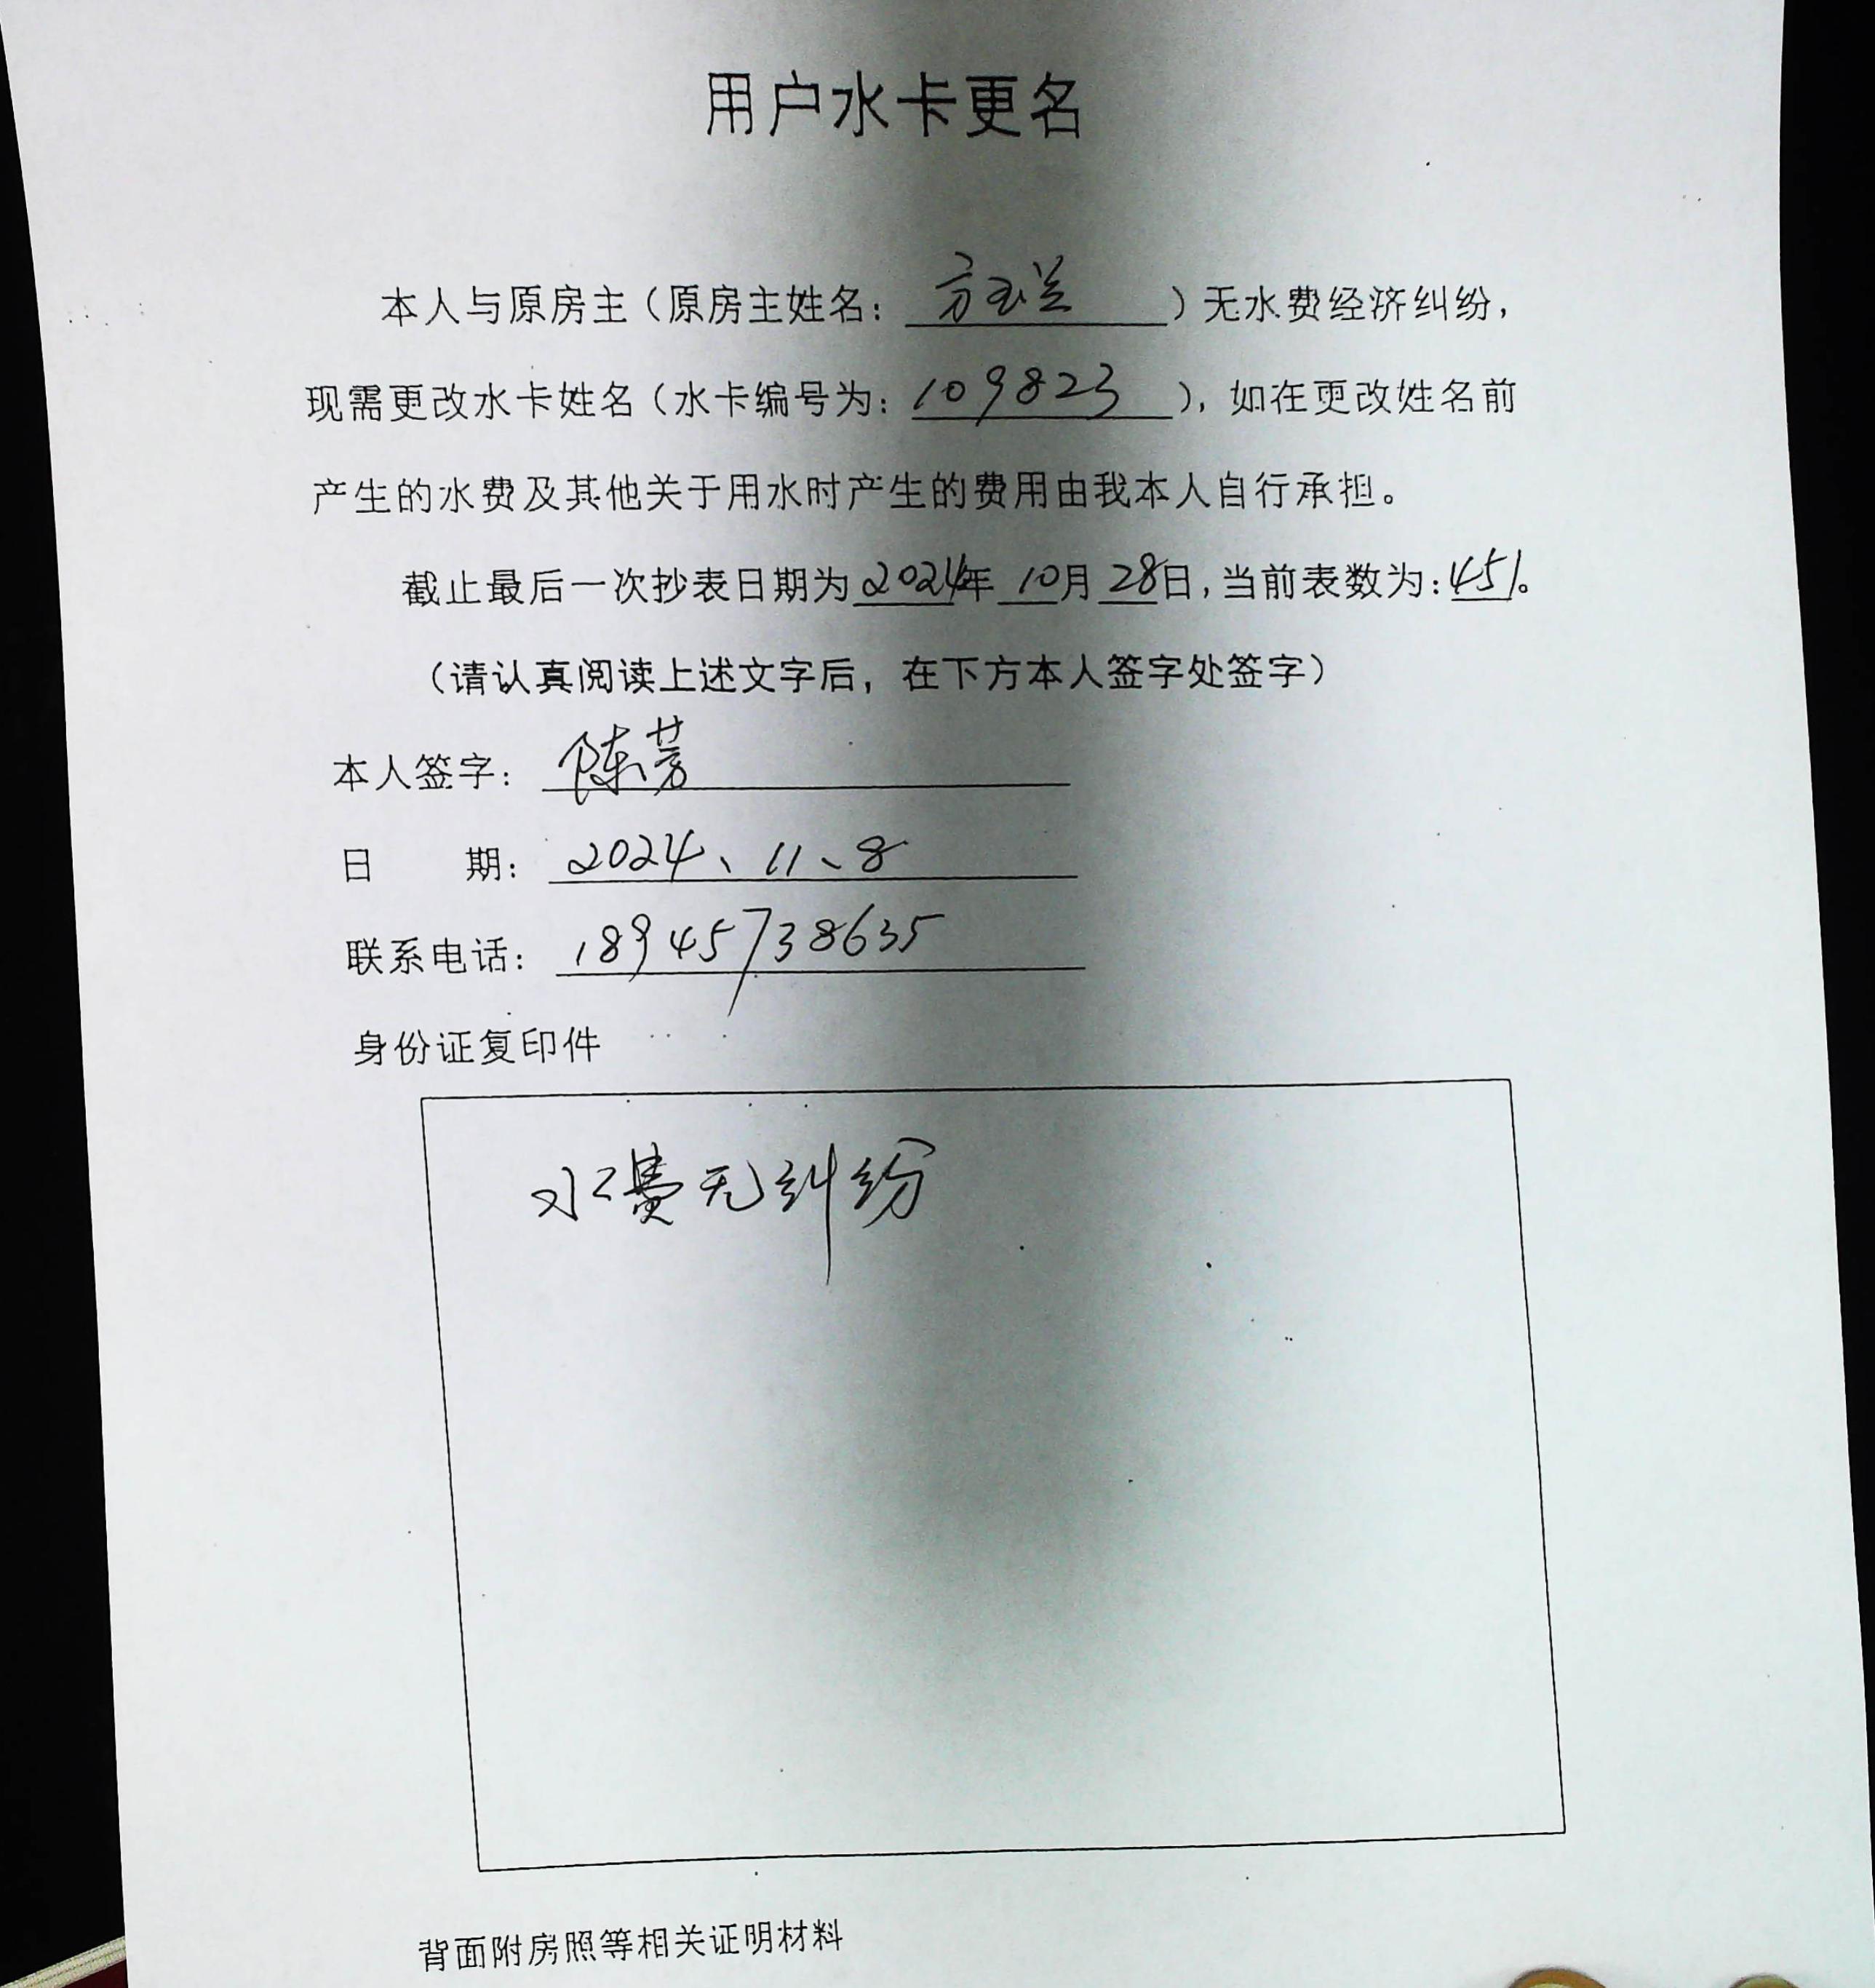 用户水卡更名
本人与原房主（原房主姓名：方玉兰）无水费经济纠纷，
现需更改水卡姓名（水卡编号为：109823），如在更改姓名前
产生的水费及其他关于用水时产生的费用由我本人自行承担。
截止最后一次抄表日期为2024年10月28日，当前表数为：451。
（请认真阅读上述文字后，在下方本人签字处签字）
本人签字：陈芳
日　　期：2024、11、8
联系电话：18945738635
身份证复印件
水费无纠纷
背面附房照等相关证明材料